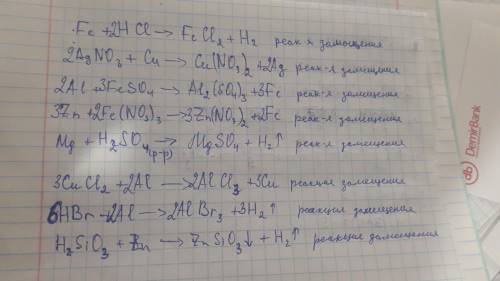 Fe + 2HCl → FeCl₂ + H₂ реак-я замещения
2AgNO₃ + Cu → Cu(NO₃)₂ + 2Ag реак-я замещения
2Al + 3FeSO₄ → Al₂(SO₄)₃ + 3Fe реак-я замещения
3Zn + 2Fe(NO₃)₃ → 3Zn(NO₃)₂ + 2Fe реак-я замещения
Mg + H₂SO₄(р-р) → MgSO₄ + H₂↑ реак-я замещения
3CuCl₂ + 2Al → 2AlCl₃ + 3Cu реакция замещения
6HBr + 2Al → 2AlBr₃ + 3H₂↑ реакция замещения
H₂SiO₃ + Zn → ZnSiO₃↓ + H₂↑ реакция замещения
DemirBank